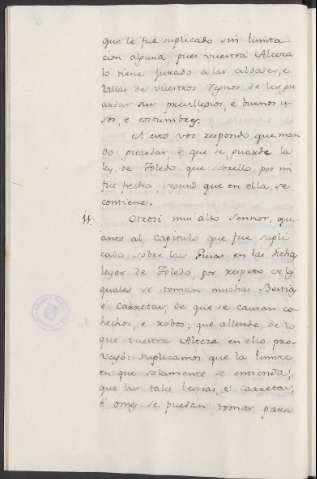 que le fue suplicado sin limita
cion alguna, pues vuestra Alteza
lo tiene jurado a las cibdades, e
Villas de vuestros Regnos de les gu
ardar sus previllejios, e buenos u
sos, e costumbres.
A esto vos respondo que man
do guardar, e que se guarde la
ley de Toledo que sobello, por mi
fue fecha, segund que en ella se
contiene.
11. Otrosi mui alto Sennor, qu
anto al Capitulo que fue supli
cado sobre las Guias en las dichas
leyes de Toledo, por respeto de lo
quales se toman muchas Bestias
e Carretas, de que se causan co
hechos, e robos; que allende de lo
que vuestra Alteza en ello pro
veyó: Suplicamos que la limite
en que solamente se entienda;
que las tales bestias, e carretas,
e omes se puedan tomar para